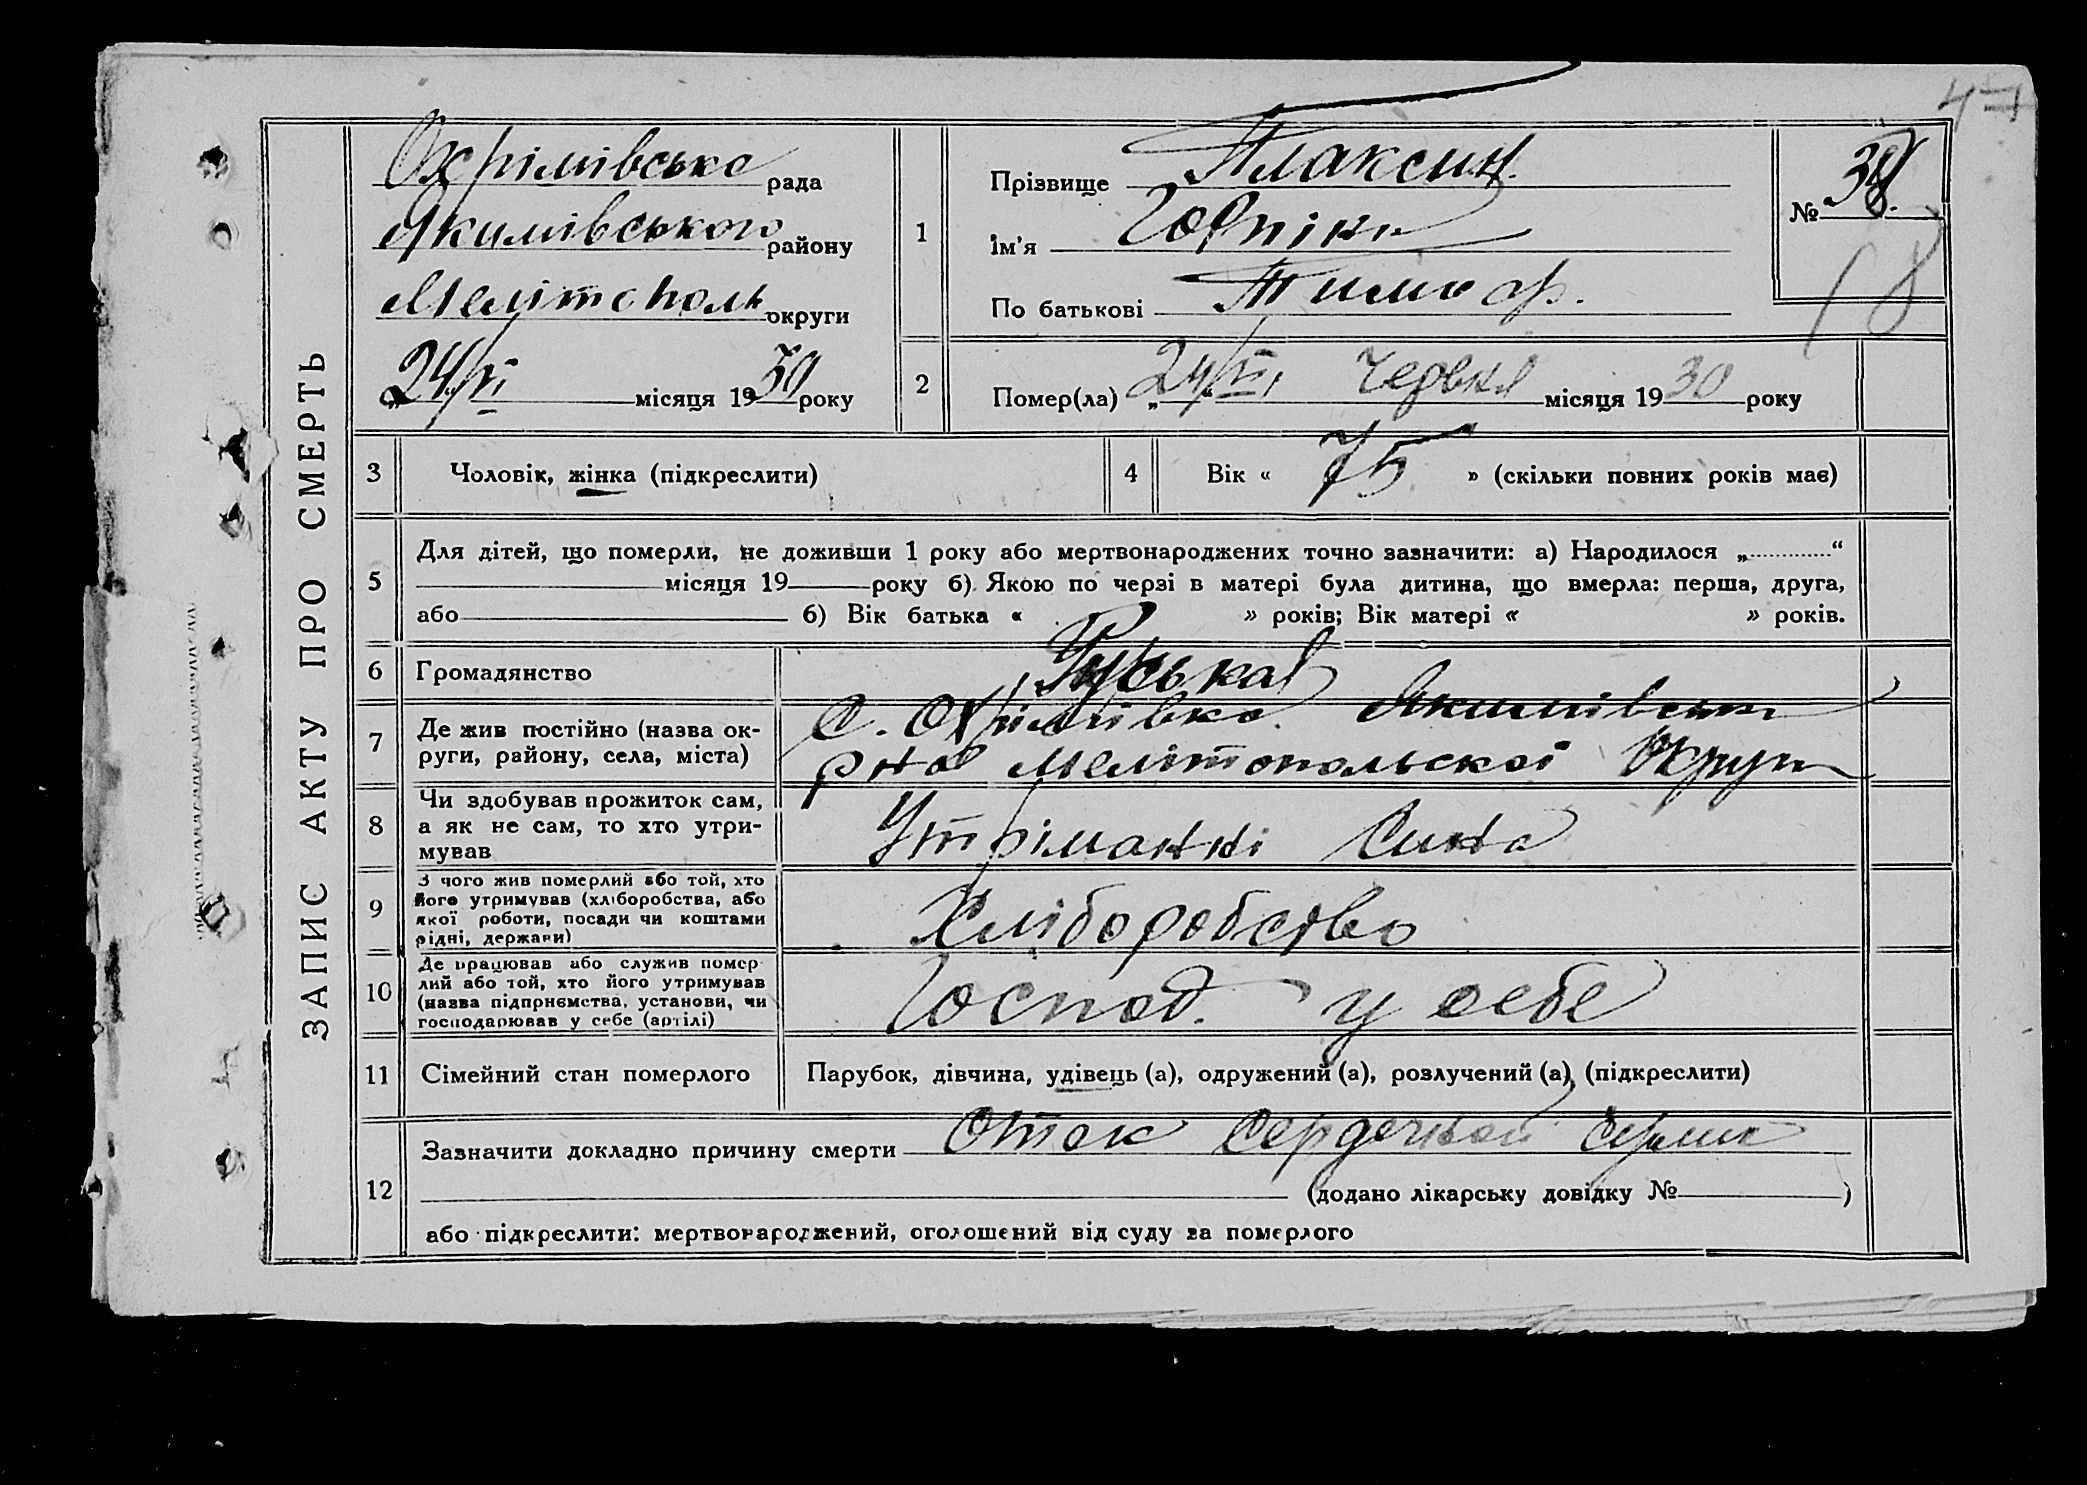 47
ЗАПИС АКТУ ПРО СМЕРТЬ
Охрімівська рада
Якимівського району
Мелітополь округи
„24/VI місяця 1930 року
1
Прізвище Плаксин
Ім'я Горпіна
По батькові Тимоф.
№ 38.
18
2
Помер(ла) „24/VI“ Червня місяця 1930 року
3
Чоловік, жінка (підкреслити)
4
Вік « 75 » (скільки повних років має)
5
Для дітей, що померли, не доживши 1 року або мертвонароджених точно зазначити: а) Народилося „ “
місяця 19 року б) Якою по черзі в матері була дитина, що вмерла: перша, друга,
або б) Вік батька « » років; Вік матері « » років.
6
Громадянство
Руська
7
Де жив постійно (назва ок-
руги, району, села, міста)
С. Охрімівка Якимівськ
р-на Мелітопольскої Округи
8
Чи здобував прожиток сам,
а як не сам, то хто утри-
мував
Утріманні Сина
9
З чого жив померлий або той, хто
його утримував (хліборобства, або
якої роботи, посади чи коштами
рідні, держави)
Хліборобство
10
Де працював або служив помер-
лий або той, хто його утримував
(назва підприємства, установи, чи
господарював у себе (артілі)
Господ. у себе
11
Сімейний стан померлого
Парубок, дівчина, удівець (а), одружений (а), розлучений (а), (підкреслити)
12
Зазначити докладно причину смерти Отек Сердечной
(додано лікарську довідку № )
або підкреслити: мертвонароджений, оголошений від суду за померлого